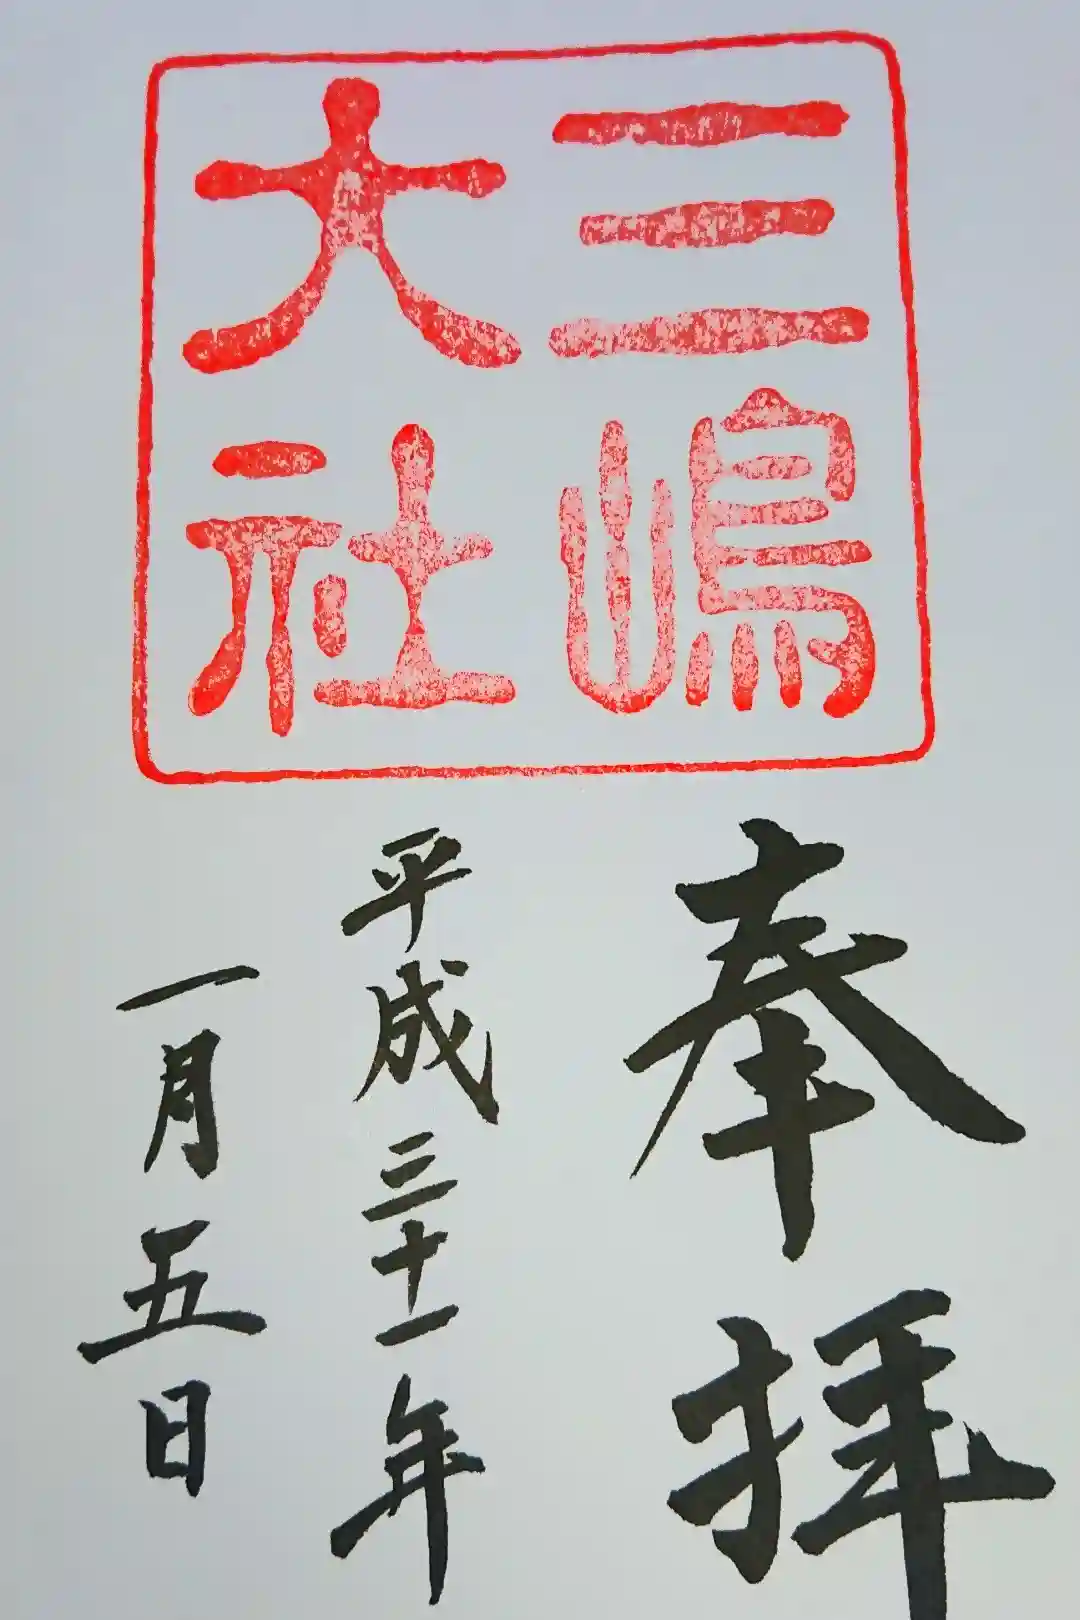 三嶋
大社
奉拝
平成三十一年
一月五日